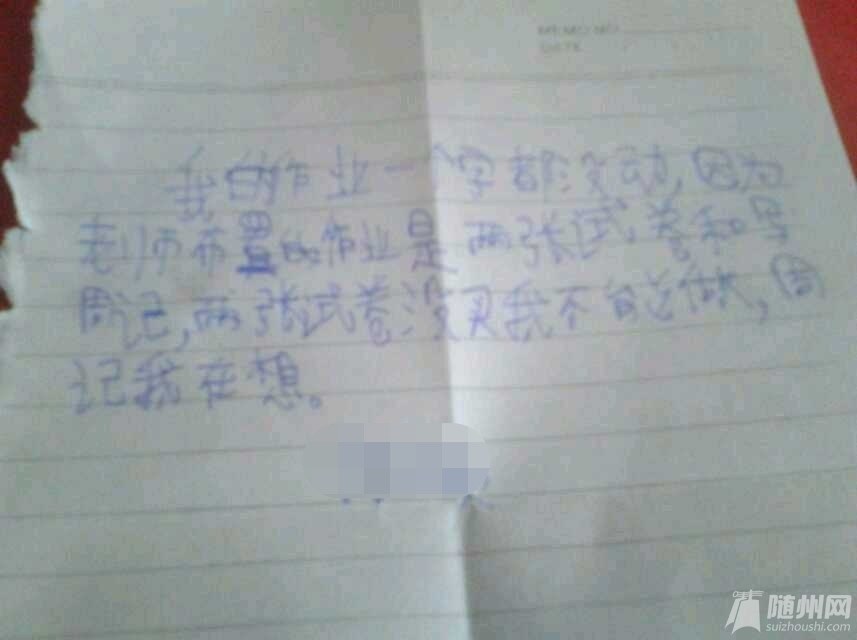 我的作业一个字都没动,因为
老师布置的作业是两张试卷和写
周记,两张试卷没买我不能做,周
记我在想。
随州网
suizhoushi.com